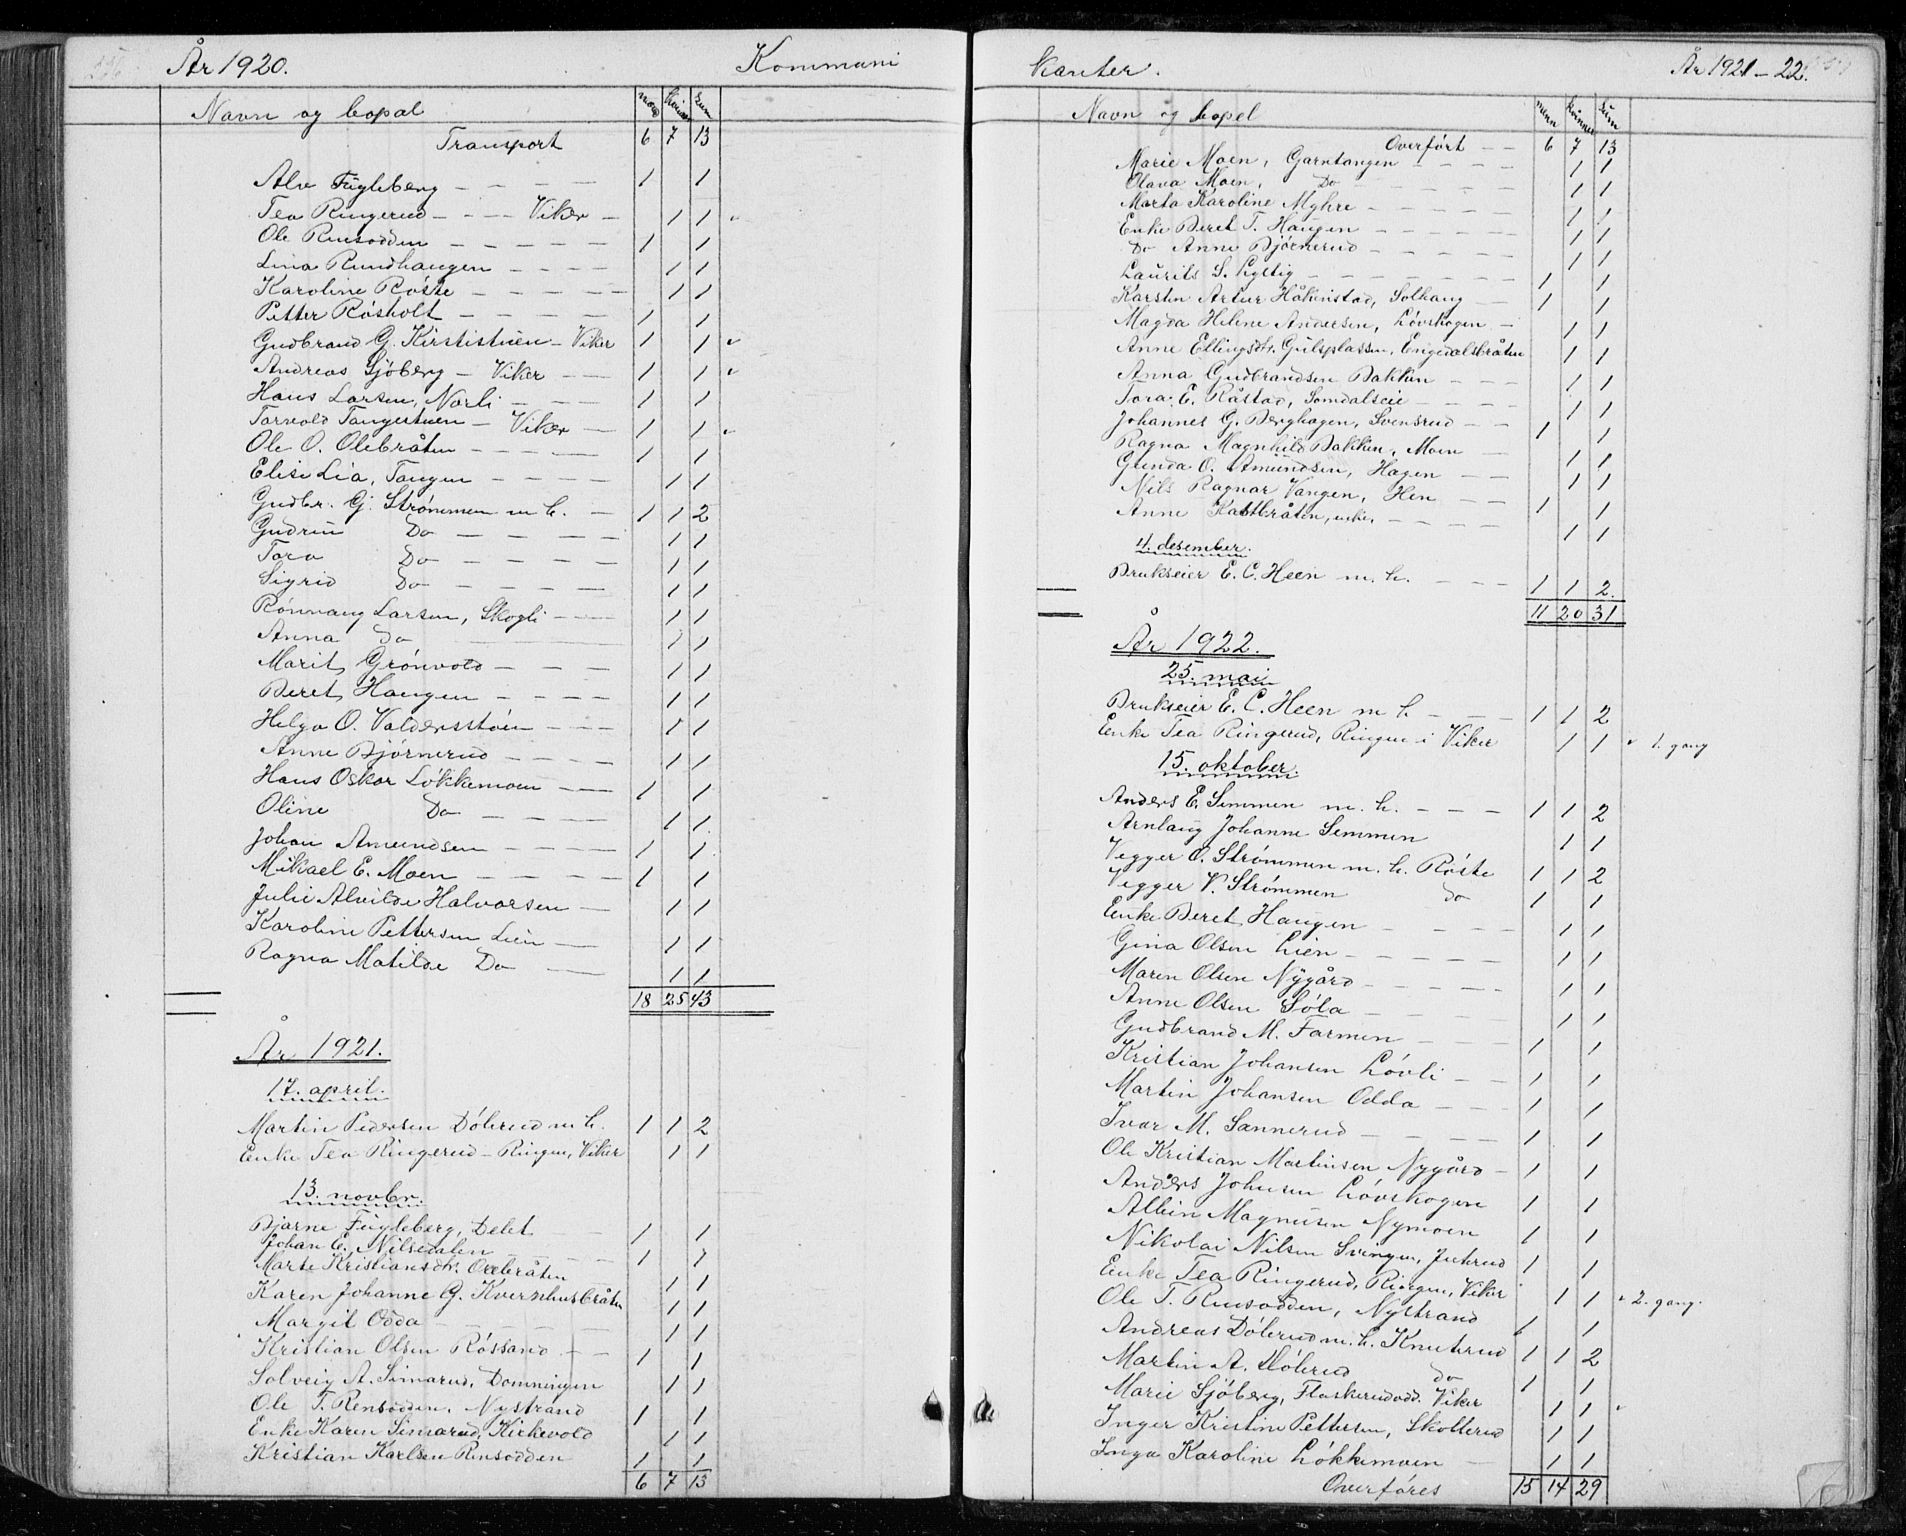 År 1920.
Kommuni
Navn og bopæl mænd kvinder sum
Transport 6 7 13
Alv Fügleberg - - - - 1 1
Tea Ringerud - - - Viker - 1 1
Ole Rensodden - - - - - 1 1
Lina Rundhaugen - - - - 1 1
Karoline Röste - - - - - 1 1
Petter Rösholt - - - - - 1 1
Gudbrand G. Kirstistüen - Viker 1 1
Andreas Sjöberg - Viker - - 1 1
Hans Larsen, Norli - - - - 1 1
Torvold Tangestuen - Viker - 1 1
Ole O. Olebråten - - - - - 1 1
Elise Lia, Tangen - - - - - 1 1
Gudbr. G. Strömmen m h. - 1 1 2
Gudrün Do - - - - - 1 1
Tora Do - - - - - 1 1
Sigrid Do - - - - 1 1
Rönnaug Larsen, Skogli - - - 1 1
Anna do 1 1
Marit Grönvold - - - - 1 1
Beret Haugen - - - - - 1 1
Helga O. Valdersstöen - - - 1 1
Anne Björnerud - - - - 1 1
Hans Oskar Lökkemoen - - - 1 1
Oline Do - - - - 1 1
Johan Amundsen - - - - 1 1
Mikael E. Moen - - - - - 1 1
Julie Alvilde Halvorsen - 1 1
Karoline Pettersen Lien - 1 1
Ragna Matilde Do - 1 1
18 25 43
År 1921.
17. april.
Martin Pedersen Döhrud m h. 1 1 2
Enke Tea Ringerud - Ringen, Viker 1 1
13. novbr.
Bjarne Fügleberg, Delet - 1 1
Johan E. Nilsedalen - - - 1 1
Marte Kristiansdtr. Orebråten 1 1
Karen Johanne G. Kvernhusbråten 1 1
Margit Odda - - - - 1 1
Kristian Olsen Rössand - - 1 1
Solveig A. Simarud, Domningen 1 1
Ole T. Rensodden, Nystrand 1 1
Enke Karen Simarud, Kirkevold 1 1
Kristian Karlsen Rensodden 1 1
6 7 13
kanter.
År 1921 - 22.
Navn og bopel menn kvinner sum
Overfört - - 6 7 13
Marie Moen, Garntangen - - - - 1 1
Olava Moen, Do - - - - - 1 1
Marta Karoline Myhre - - - - - 1 1
Enke Beret T. Haugen - - - - - 1 1
Do Anne Björnerud - - - - - 1 1
Laurits S. Lystig - - - - - - 1 1
Karsten Artur Håkenstad, Solhaug - - 1 1
Magda Helene Andersen, Lövskogen - 1 1
Anne Ellingsdtr. Gulsplassen, Engedalsbråten 1 1
Anna Gudbrandsen Bakken - - - 1 1
Tora E. Råstad, Somdalseie - - - - 1 1
Johannes G. Berghagen, Svensrud - - 1 1
Ragna Magnhild Bakken, Moen - - 1 1
Gunda O. Amundsen, Hagen - - - 1 1
Nils Ragnar Vangen, Hen - - - 1 1
Anne Kattbråten, enke, - - - - 1 1
4. desember.
Brukseier E. C. Heen m. h. - - - 1 1 2.
11 20 31
År 1922.
25. mai
Brukseier E. C. Heen m h. - - - 1 1 2
Enke Tea Ringerud, Ringen i Viker 1 1 1. gang
15. oktober.
Anders E. Semmen m. h. - - - 1 1 2
Arnlaug Johanne Semmen 1 1
Vegger O. Strömmen m. h. Röste 1 1 2
Vegger V. Strömmen do 1 1
Enke Beret Haugen - - - - 1 1
Gina Olsen Lien - - - - - 1 1
Maren Olsen Nygård - - - - - 1 1
Anne Olsen Söla - - - 1 1
Gudbrand M. Farmen - - - 1 1
Kristian Johansen Lövli - - 1 1
Martin Johansen Odda - - - 1 1
Ivar M. Sannerud - - - - - 1 1
Ole Kristian Martinsen Nygård - 1 1
Anders Johnsen Lövskogen 1 1
Albin Magnusen Nymoen 1 1
Nikolai Nilsen Svingen, Juhrud 1 1
Enke Tea Ringerud, Ringen, Viker 1 1 2. gang.
Ole T. Rensodden, Nystrand 1 1
Andreas Döhrud m. h. Knutsrud 1 1 2
Martin A. Döhrud do 1 1
Marie Sjöberg, Flaskerudodd. Viker 1 1
Inger Kristine Pettersen, Skollerud 1 1
Inga Karoline Lökkemoen - 1 1
Overföres 15 14 29